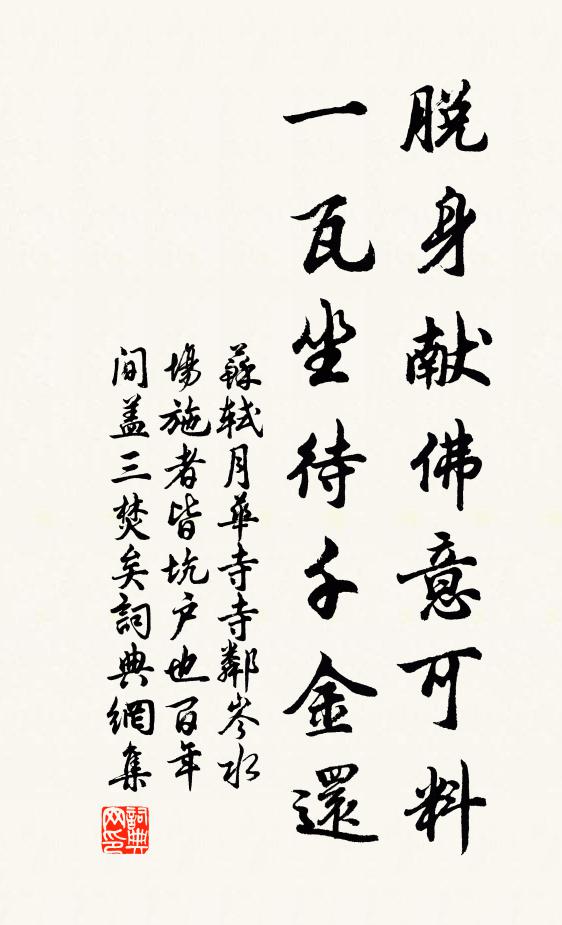 脱身献佛意可料
一瓦坐待千金還
蘇軾月華寺寺鄰岑水
場施者皆坑户也百年
间盖三焚矣詞典網集
詞典网印